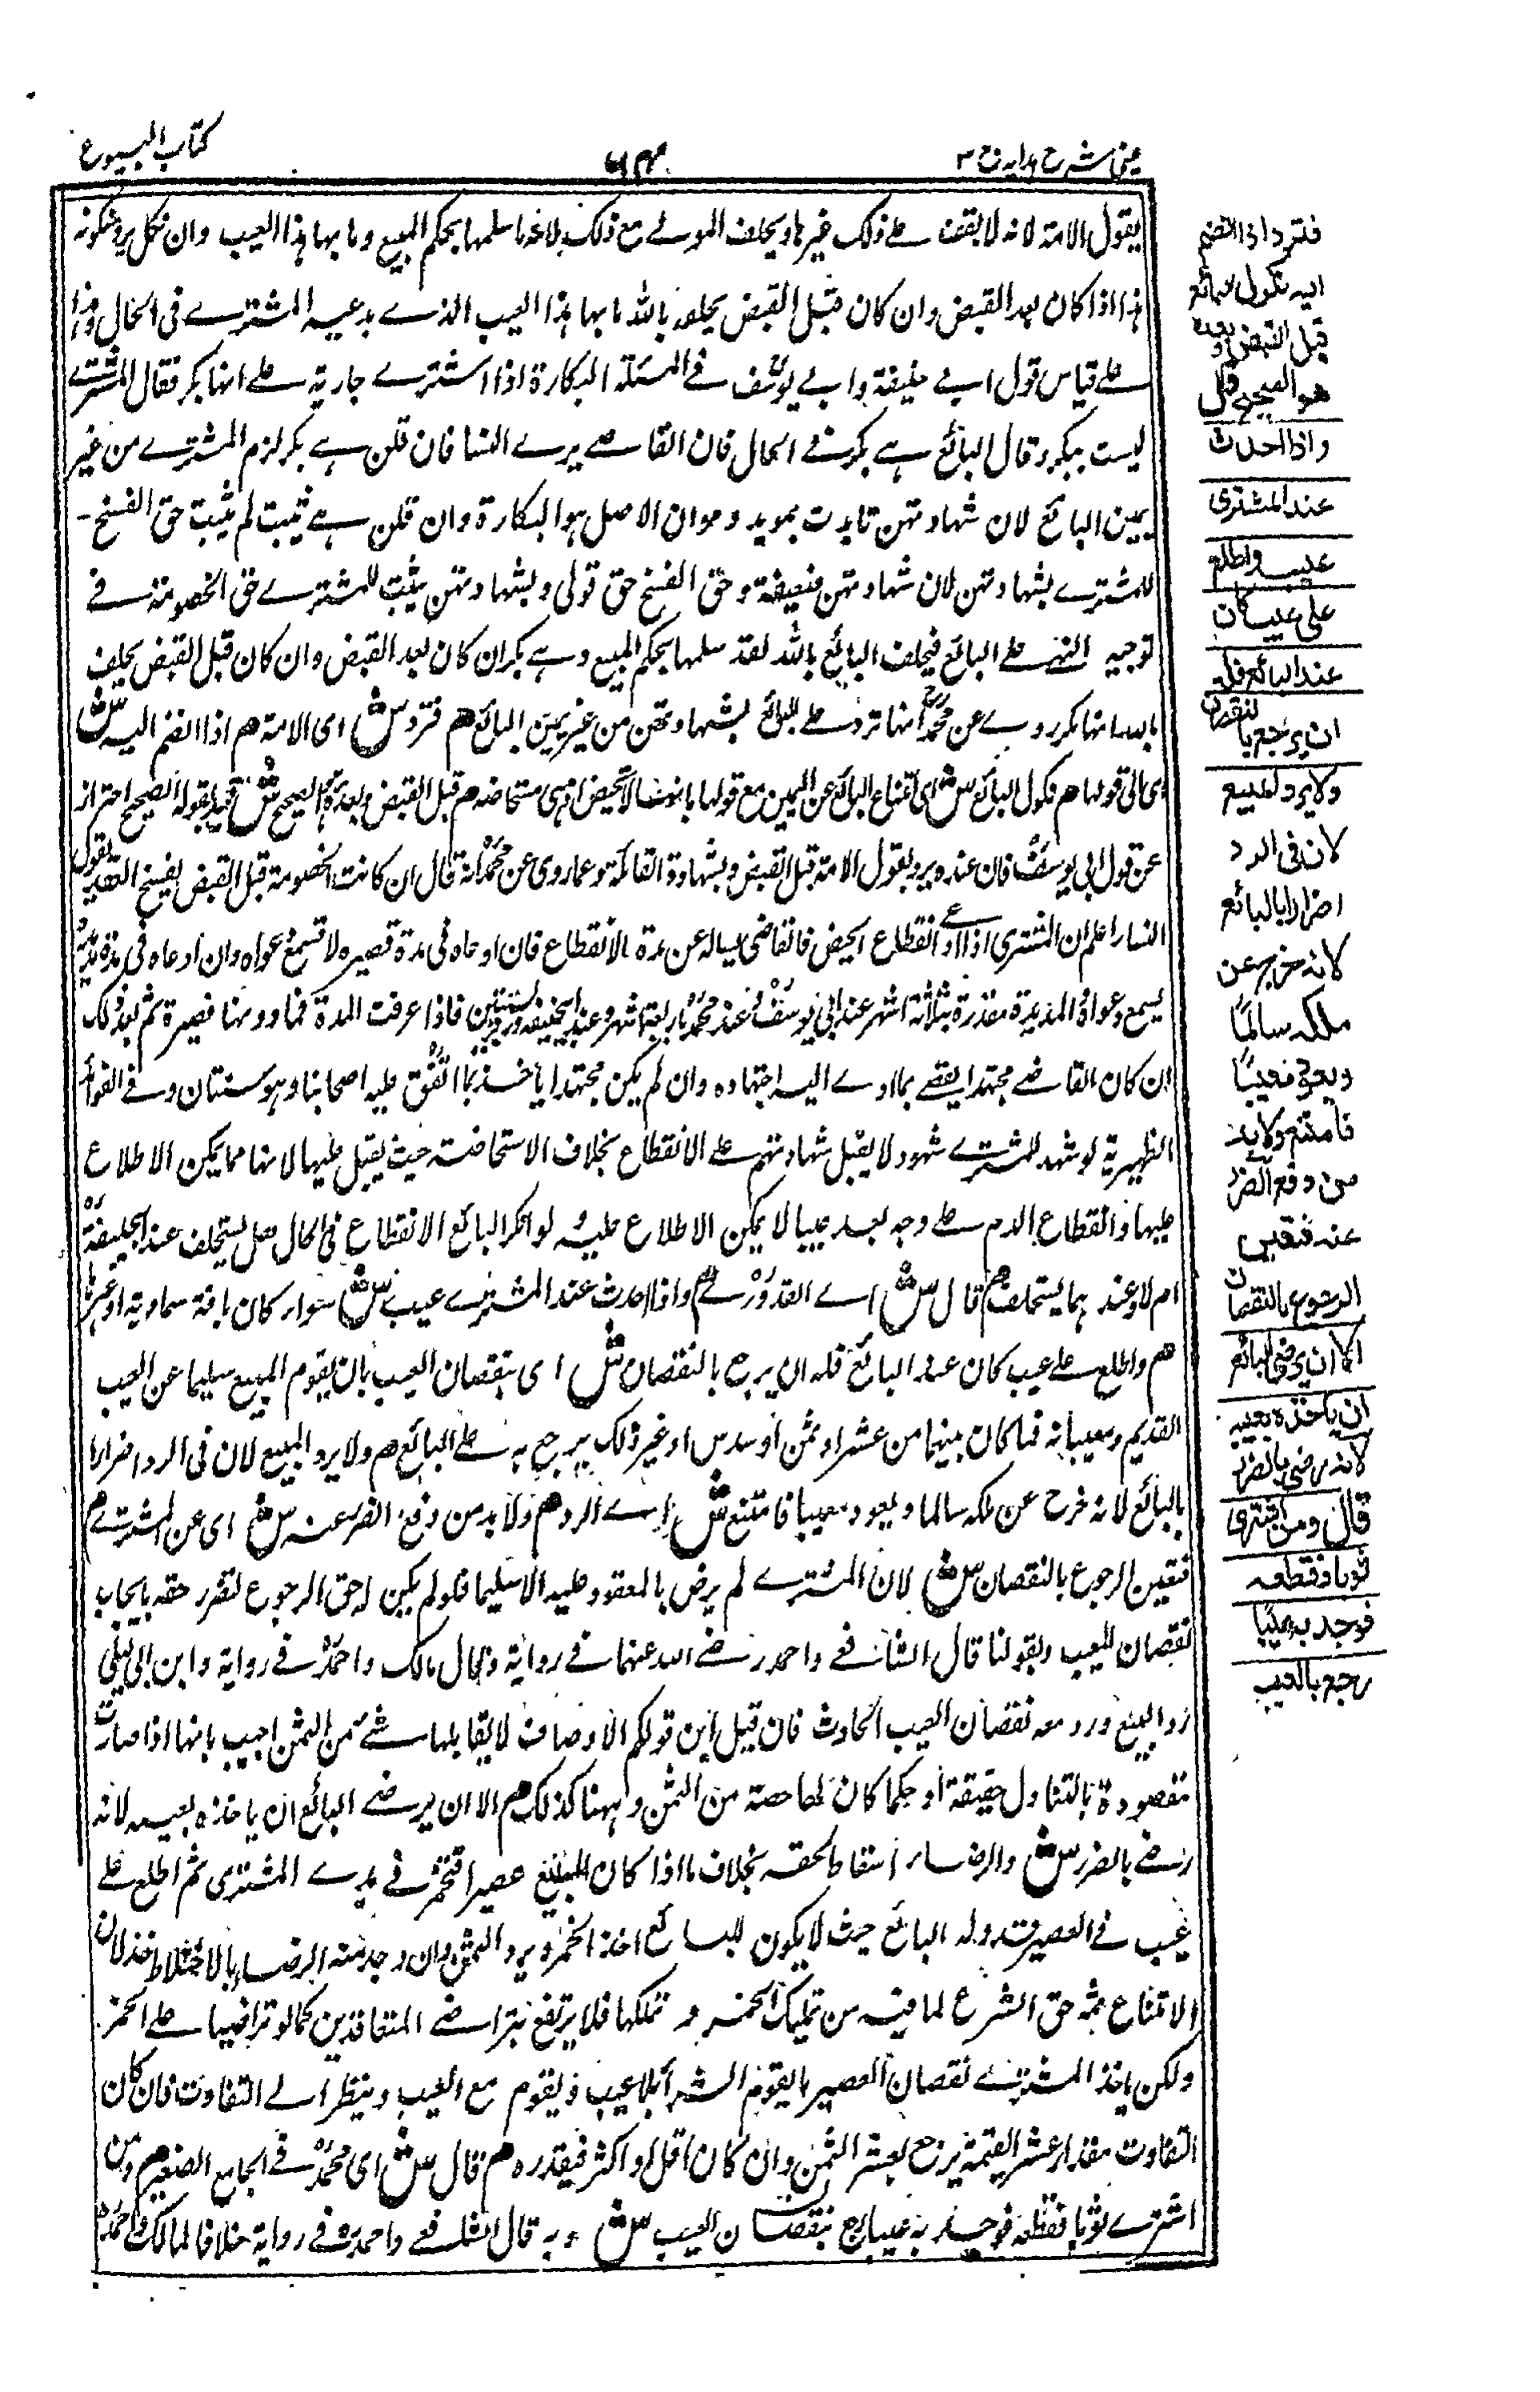 عینی شرح هدایه ج ٣
كتاب البيوع
يقول الامة لانه لا يقف على ذلك غيرها ويحلف المولى مع ذلك بالله ما سلمها بحكم البيع وما بها هذا العيب وان نكل يرد بنكوله
هذا اذا كان بعد القبض وان كان قبل القبض يحلف بالله ما بها هذا العيب الذى يدعيه المشترى فى الحال وهذا
على قياس قول ابى حنيفة وابى يوسف فى المسئلة البكارة اذا اشترى جارية على انها بكر فقال المشترى
ليست ببكر وقال البائع هى بكر فى الحال فان القاضى يرى النسا فان قلن هى بكر لزم المشترى من غير
يمين البائع لان شهادتهن تايدت بمويد وهو ان الاصل هو البكارة وان قلن هى ثيبت لم يثبت حق الفسخ
للمشترى بشهادتهن لان شهادتهن ضعيفة وحق الفسخ حق قوى وبشهادتهن يثبت للمشترى حق الخصومة فى
توجيه على البائع فيحلف البائع بالله لقد سلمها بحكم البيع وهى بكر ان كان بعد القبض وان كان قبل القبض يحلف
بالله انها بكر روى عن محمد انها ترد على البائع بشهادتهن من غير يمين البائع هم فترد ش اى الامة هم اذا انضم اليه ش
اى الى قولها هم نكول البائع ش اى امتناع البائع عن اليمين مع قولها هم قبل القبض وبعده هو الصحيح ش قيد بقوله الصحيح احتراز
عن قول ابى يوسف فان عنده يرد بقول الامة قبل القبض وبشهادة القابلة وعما روى عن محمد انه قال ان كانت الخصومة قبل القبض يفسخ العقد بقول
النسا اعلم ان المشترى اذا ادعى انقطاع الحيض فالقاضى يساله عن مدة الانقطاع فان ادعاه فى مدة قصيره لا تسمع دعواه وان ادعاه فى مدة مديدة
يسمع دعواه المديدة مقدرة بثلاثة اشهر عند ابى يوسف وعند محمد باربعة اشهر وعند ابى حنيفة وزفر بسنتين فاذا عرفت المدة فما دونها قصيرة ثم بعد ذلك
ان كان القاضى مجتهدا يقضى بما ادى اليه اجتهاده وان لم يكن مجتهدا ياخذ بما اتفق عليه اصحابنا وهو سنتان وفى الفوائد
الظهيرية لو شهد للمشترى شهود لا يقبل شهادتهم على الانقطاع بخلاف الاستحاضة حيث يقبل عليها لانها مما يمكن الاطلاع
عليها وانقطاع الدم على وجه يعد عيبا لا يمكن الاطلاع عليه لو انكر البائع الانقطاع فى الحال هل يستحلف عند ابى حنيفة
ام لا وعند هما يستحلف هم قال ش اى القدورى هم واذا حدث عند المشترى عيب ش سواء كان بافة سماوية او غيرها
هم واطلع على عيب كان عند البائع فله ان يرجع بالنقصان ش اى بنقصان العيب بان يقوم المبيع سليما عن العيب
القديم ومعيبا به فما كان بينهما من عشر او ثمن او سدس او غير ذلك يرجع به على البائع هم ولا يرد المبيع لان فى الرد اضرارا
بالبائع لانه خرج عن ملكه سالما ويعود معيبا فامتنع ش اى الرد هم ولا بد من دفع الضر عنه ش اى عن المشترى هم
فتعين الرجوع بالنقصان ش لان المشترى لم يرض بالمعقود عليه الا سليما فلو لم يكن له حق الرجوع لتضرر حقه بايجاب
نقصان المعيب وبقولنا قال الشافعى واحمد رضى الله عنهما فى رواية وقال مالك واحمد فى رواية وابن ابى ليلى
رد المبيع ورد معه نقصان العيب الحادث فان قيل اين قولكم الاوصاف لا يقابلها شئ من الثمن اجيب بانها اذا صارت
مقصودة بالتناول حقيقة او حكما كان لها حصة من الثمن وههنا كذلك هم الا ان يرضى البائع ان ياخذه بعيبه لانه
رضى بالضرر ش والرضاء اسقاط لحقه بخلاف ما اذا كان المبيع عصيرا فتخمر فى يدى المشترى ثم اطلع على
عيب فى العصير البائع حيث لا يكون للبائع اخذ الخمر ويرد الثمن وان وجد منه الرضاء لان
الامتناع ثمه حق الشرع لما فيه من تمليك الخمر و تملكها فلا يرتفع بتراضى المتعاقدين كما لو تراضيا على الخمر
ولكن ياخذ المشترى نقصان العصير بلا عيب ويقوم مع العيب وينظر الى التفاوت فان كان
التفاوت مقدار عشر القيمة يرجع بعشر الثمن وان كان اقل او اكثر فبقدره هم قال ش اى محمد فى الجامع الصغير هم ومن
اشترى ثوبا فقطعه فوجد به عيبا رجع بنقصان العيب ش وبه قال الشافعى واحمد فى رواية خلافا لمالك واحمد
فترد اذا انضم
اليه نكول البائع
قبل القبض وبعده
هو الصحيح قال
واذا حدث
عند المشترى
عيب واطلع
على عيب كان
عند البائع فله
ان يرجع بالنقصان
ولا يرد المبيع
لان فى الرد
اضرارا بالبائع
لانه خرج عن
ملكه سالمًا
ويعود معيبًا
فامتنع ولا بد
من دفع الضرر
عنه فتعين
الرجوع بالنقصان
الا ان يرضى البائع
ان ياخذه بعيبه
لانه رضى بالضرر
قال ومن اشترى
ثوبا فقطعه
فوجد به عيبًا
رجع بالعيب